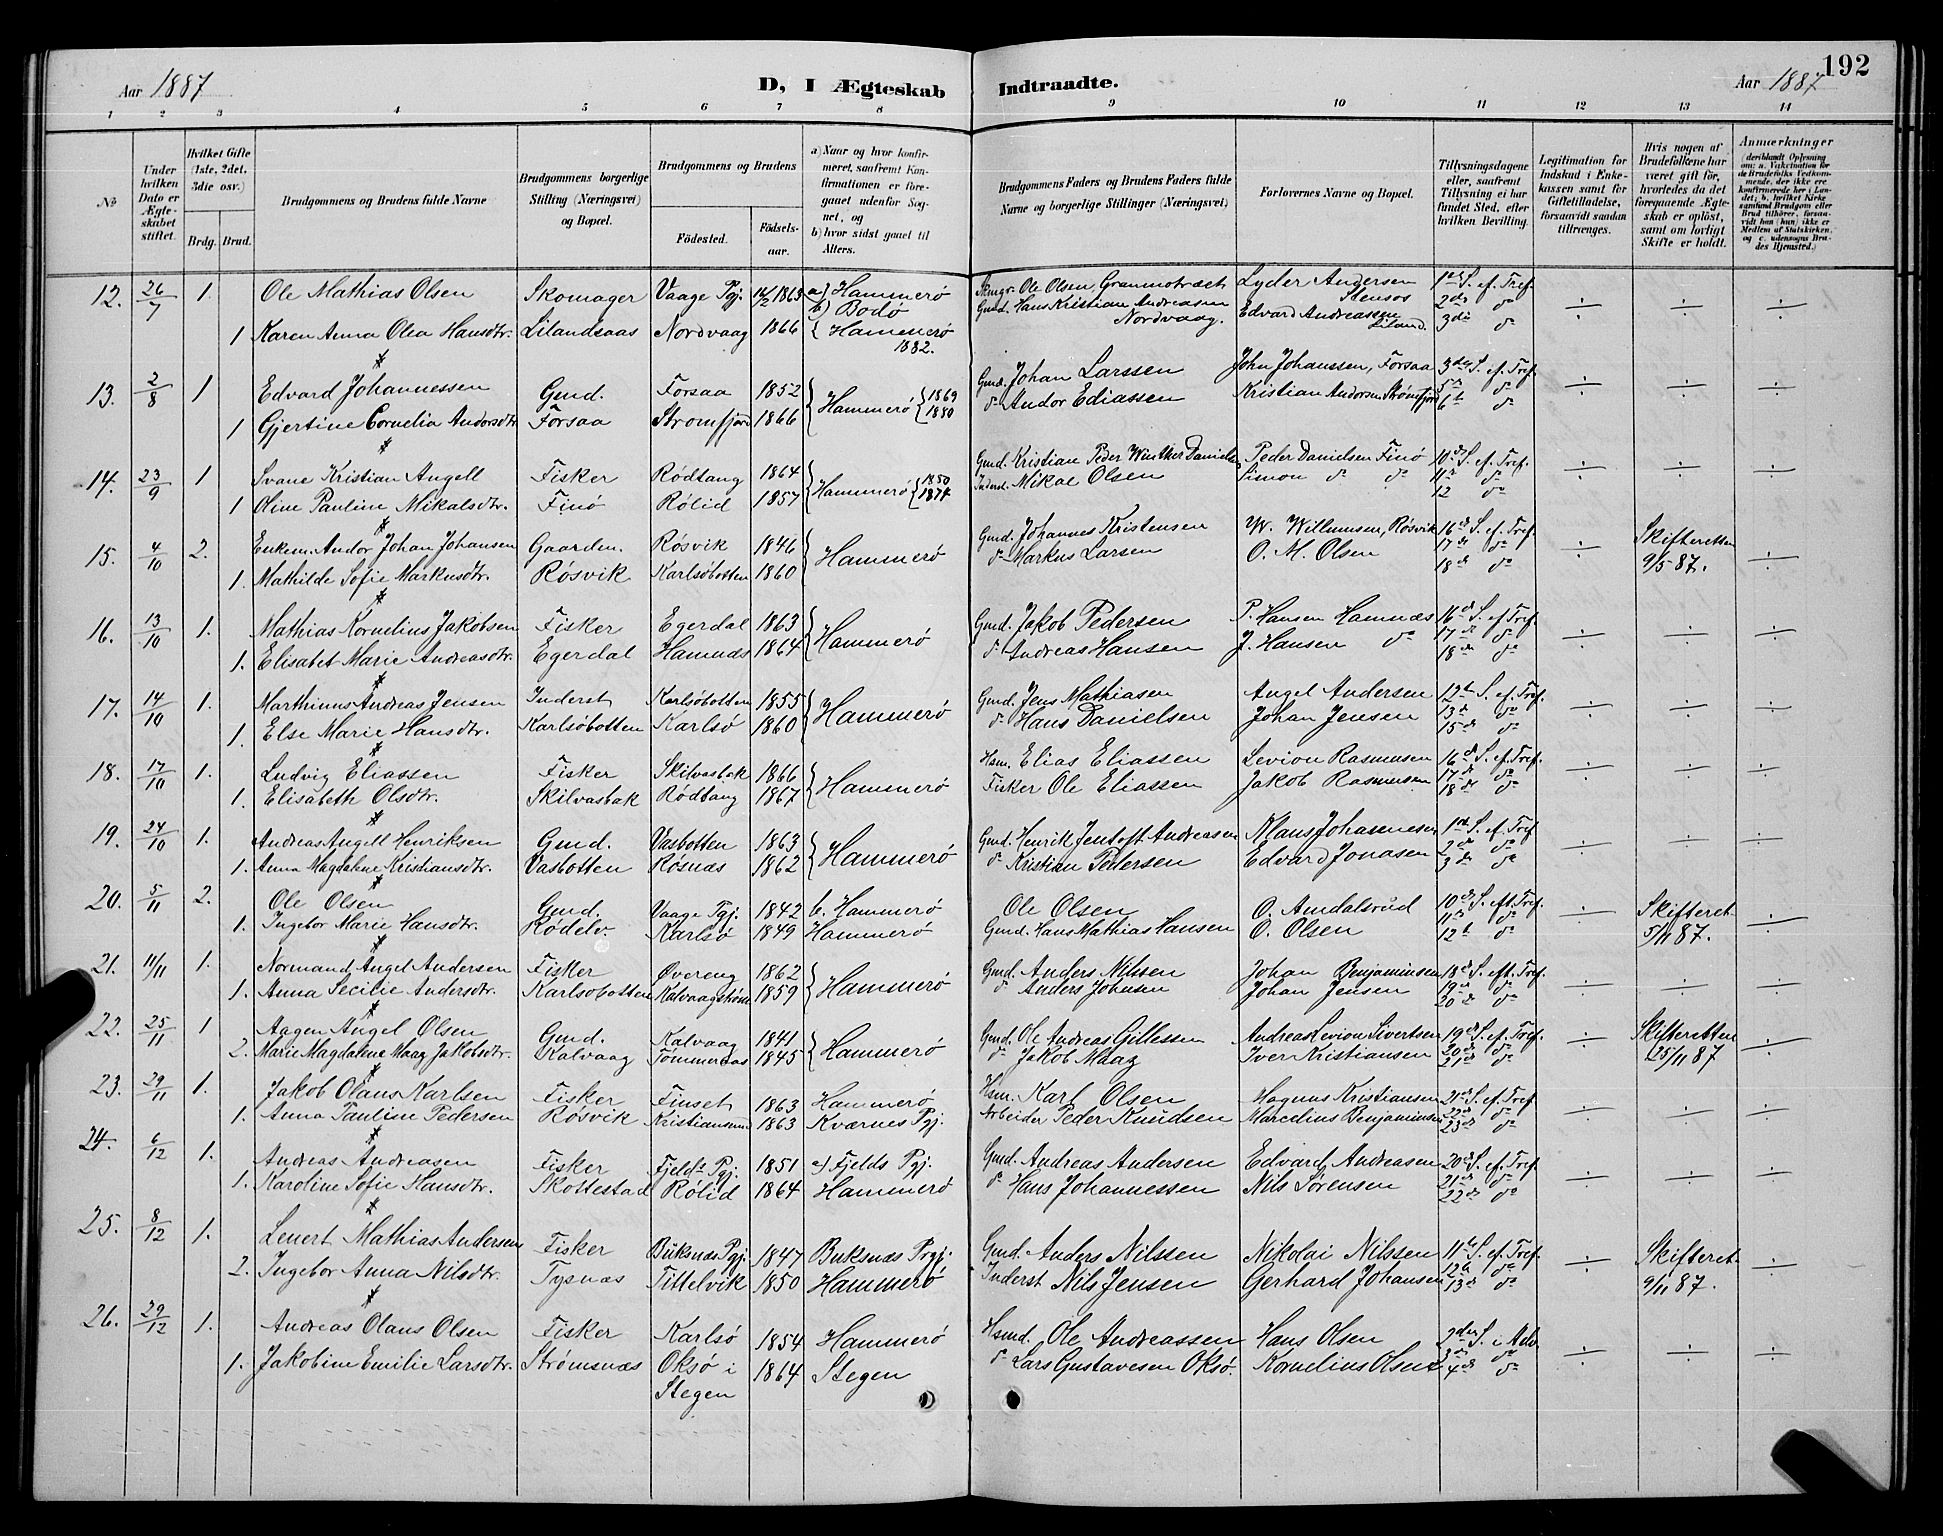 192
Aar 1887 D, I Ægteskab Indtraadte. Aar 1887
1 2 3 4 5 6 7 8 9 10 11 12 13 14
No
Under hvilken Dato er Ægteskabet stiftet.
Hvilket Gifte (1ste, 2det, 3die osv.)
Brdg. Brud.
Brudgommens og Brudens fulde Navne
Brudgommens borgerlige Stilling (Næringsvei) og Bopæl.
Brudgommens og Brudens
Fødested. Fødselsaar.
a) Naar og hvor konfirmeret, saafremt Konfirmationen er foregaaet udenfor Sognet, og
b) hvor sidst gaaet til Alters.
Brudgommens Faders og Brudens Faders fulde Navne og borgerlige Stillinger (Næringsvei)
Forlovernes Navne og Bopæl.
Tillysningsdagene eller, saafremt Tillysning ei har fundet Sted, efter hvilken Bevilling.
Legitimation for Indskud i Enkekassen samt for Giftetilladelse, forsaavidt saadan tiltrænges.
Hvis nogen af Brudefolkene har været gift før, hvorledes da det foregaaende Ægteskab er opløst, samt om lovligt Skifte er holdt.
Anmærkninger
(deriblandt Oplysning om: a. Vakcination for de Brudefolks Vedkommende, der ikke ere konfirmerede her i Landet; b. hvilket Kirkesamfund Brudgom eller Brud tilhører, forsaavidt han (hun) ikke er Medlem af Statskirken, og c. udensogns Brudes Hjemsted.)
12. 26/7 1. Ole Mathias Olsen Skomager Vaage Pgj. 14/2 1863 a) Hammerø Skmgr. Ole Olsen Granmotræet Lyder Andersen Stensos 1ste S. ef. Tref. ÷ ÷ ÷
b) Bodø 2de do
1 Karen Anna Olea Hansdtr. Lilandsaas Nordvaag 1866 Hammerø 1882. Gmd. Hans Kristian Andreasen Nordvaag. Edvard Andreassen Liland. 3die do
13. 2/8 1 Edvard Johannessen Gmd. Forsaa 1852 Hammerø 1869 Gmd. Johan Larssen John Johanssen, Forsaa 3die S. ef. Tref. ÷ ÷ ÷
1 Gjertine Cornelia Andorsdtr Forsaa Strømfjord 1866 1880 do Andor Ediassen Kristian Andorsen Strømfjord 5te 6te do
14. 23/9 1 Svane Kristian Angell Fisker Rødtang 1864 Hammerø 1850 Gmd. Kristian Peder Winther Danielsen Peder Danielsen Finø 10de S. ef. Tref. ÷ ÷ ÷
1 Oline Pauline Mikalsdtr. Finø Rølid 1857 1874 Inderst. Mikal Olsen Simon do do 11te do 12 do
15. 4/10 2. Enkem. Andor Johan Johansen Gaardm. Røsvik 1846 Hammerø Gmd. Johannes Kristensen W. Willumsen, Røsvik 16de S. ef. Tref. ÷ Skifteretten ÷
1. Mathilde Sofie Markusdtr. Røsvik Karlsøbotten 1860 do Markus Larsen O. M. Olsen 17de do 18de do 9/5 87.
16. 13/10 1. Mathias Kornelius Jakobsen Fisker Egerdal 1863 Hammerø Gmd. Jakob Pedersen P. Hansen Hamnæs 16de S. ef. Tref. ÷ ÷ ÷
1. Elisabet Marie Andreasdtr. Egerdal Hamnæs 1864 do Andreas Hansen J. Hansen do 17de do 18de do
17. 14/10 1. Marthinus Andreas Jensen Inderst Karlsøbotten 1855 Hammerø Gmd. Jens Mathiasen Angel Andersen 12te S. ef. Tref. ÷ ÷ ÷
1. Else Marie Hansdtr. Karlsøbotten Karlsø 1860 do Hans Danielsen Johan Jensen 13de do 15de do
18. 17/10 1. Ludvig Eliassen Fisker Skilvasbak 1866 Hammerø Hsm. Elias Eliassen Levion Rasmusen 16de S. ef. Tref. ÷ ÷ ÷
1. Elisabeth Olsdtr. Skilvasbak Rødtang 1867 Fisker Ole Eliassen Jakob Rasmusen 17de do 18de do
19. 24/10 1. Andreas Angell Henriksen Gmd. Vasbotten 1863 Hammerø Gmd. Henrik Jentoft Andreasen Klaus Johannesen 1ste S. ef. Tref. ÷ ÷ ÷
1. Anna Magdalene Kristiansdtr. Vasbotten Røsnæs 1862 do Kristian Pedersen Edvard Jonasen 2de do 3de do
20. 5/11 2. Ole Olsen Gmd. Vaage Pgj. 1842 b. Hammerø Ole Olsen O. Amdalsrud 10de S. eft. Tref. ÷ Skifteret. ÷
1. Ingebor Marie Hansdtr. Rødelv Karlsø 1849 Hammerø Gmd. Hans Mathias Hansen O. Olsen 11te do 12te do 5/11 87.
21. 11/11 1. Normand Angel Andersen Fisker Øvereng 1862 Hammerø Gmd. Anders Nilssen Johan Benjaminsen 18de S. eft. Tref. ÷ ÷ ÷
1. Anna Secilie Andersdtr. Karlsøbotten Kalvaagstrøm 1859 do Anders Johnsen Johan Jensen 19de do 20de do
22. 25/11 1 Aagen Angel Olsen Gmd. Kalvaag 1841 Hammerø Gmd. Ole Andreas Gillessen Andreas Levion Sivertsen 19de S. ef. Tref. ÷ Skifteretten ÷
2. Marie Magdalene Maaz Jakobsdtr. Kalvaag Tømmeraas 1845 do Jakob Maaz Iver Kristiansen 20de do 21de do 25/11 87
23. 29/11 1. Jakob Olaus Karlsen Fisker Finset 1863 Hammerø Hsm. Karl Olsen Magnus Kristiansen 21de S. ef. Tref. ÷ ÷ ÷
1. Anna Pauline Pedersen Røsvik Kristiansund 1863 Kværnes Pgj. Arbeider Peder Knudsen Marcelius Benjaminsen 22de do 23de do
24. 6/12 1. Andreas Andreasen Fisker Fjelds Pgj. 1851 a) Fjelds Pgj. Gmd. Andreas Andersen Edvard Andreasen 20de S. ef. Tref. ÷ ÷ ÷
1. Karoline Sofie Hansdtr. Skottestad Rølid 1864 Hammerø do Hans Johannessen Nils Sørensen 21de do 22de do
25. 8/12 1. Lenert Mathias Andersen Fisker Buksnæs Pgj. 1847 Buksnæs Prgj. Gmd. Anders Nilssen Nikolai Nilssen 11te S. ef. Tref. ÷ Skifteret. ÷
2. Ingebor Anna Nilsdtr. Tysnæs Tittelvik 1850 Hammerø Inderst Nils Jensen Gerhard Johansen 12te do 13de do 9/11 87.
26. 29/12 1. Andreas Olaus Olsen Fisker Karlsø 1854 Hammerø Hsmd. Ole Andreassen Hans Olsen 2den S. i Adv. ÷ ÷ ÷
1. Jakobine Emilie Larsdtr. Strømsnæs Oksø i Stegen 1864 Stegen do Lars Gustavesen Oksø. Kornelius Olsen 3de do 4de do